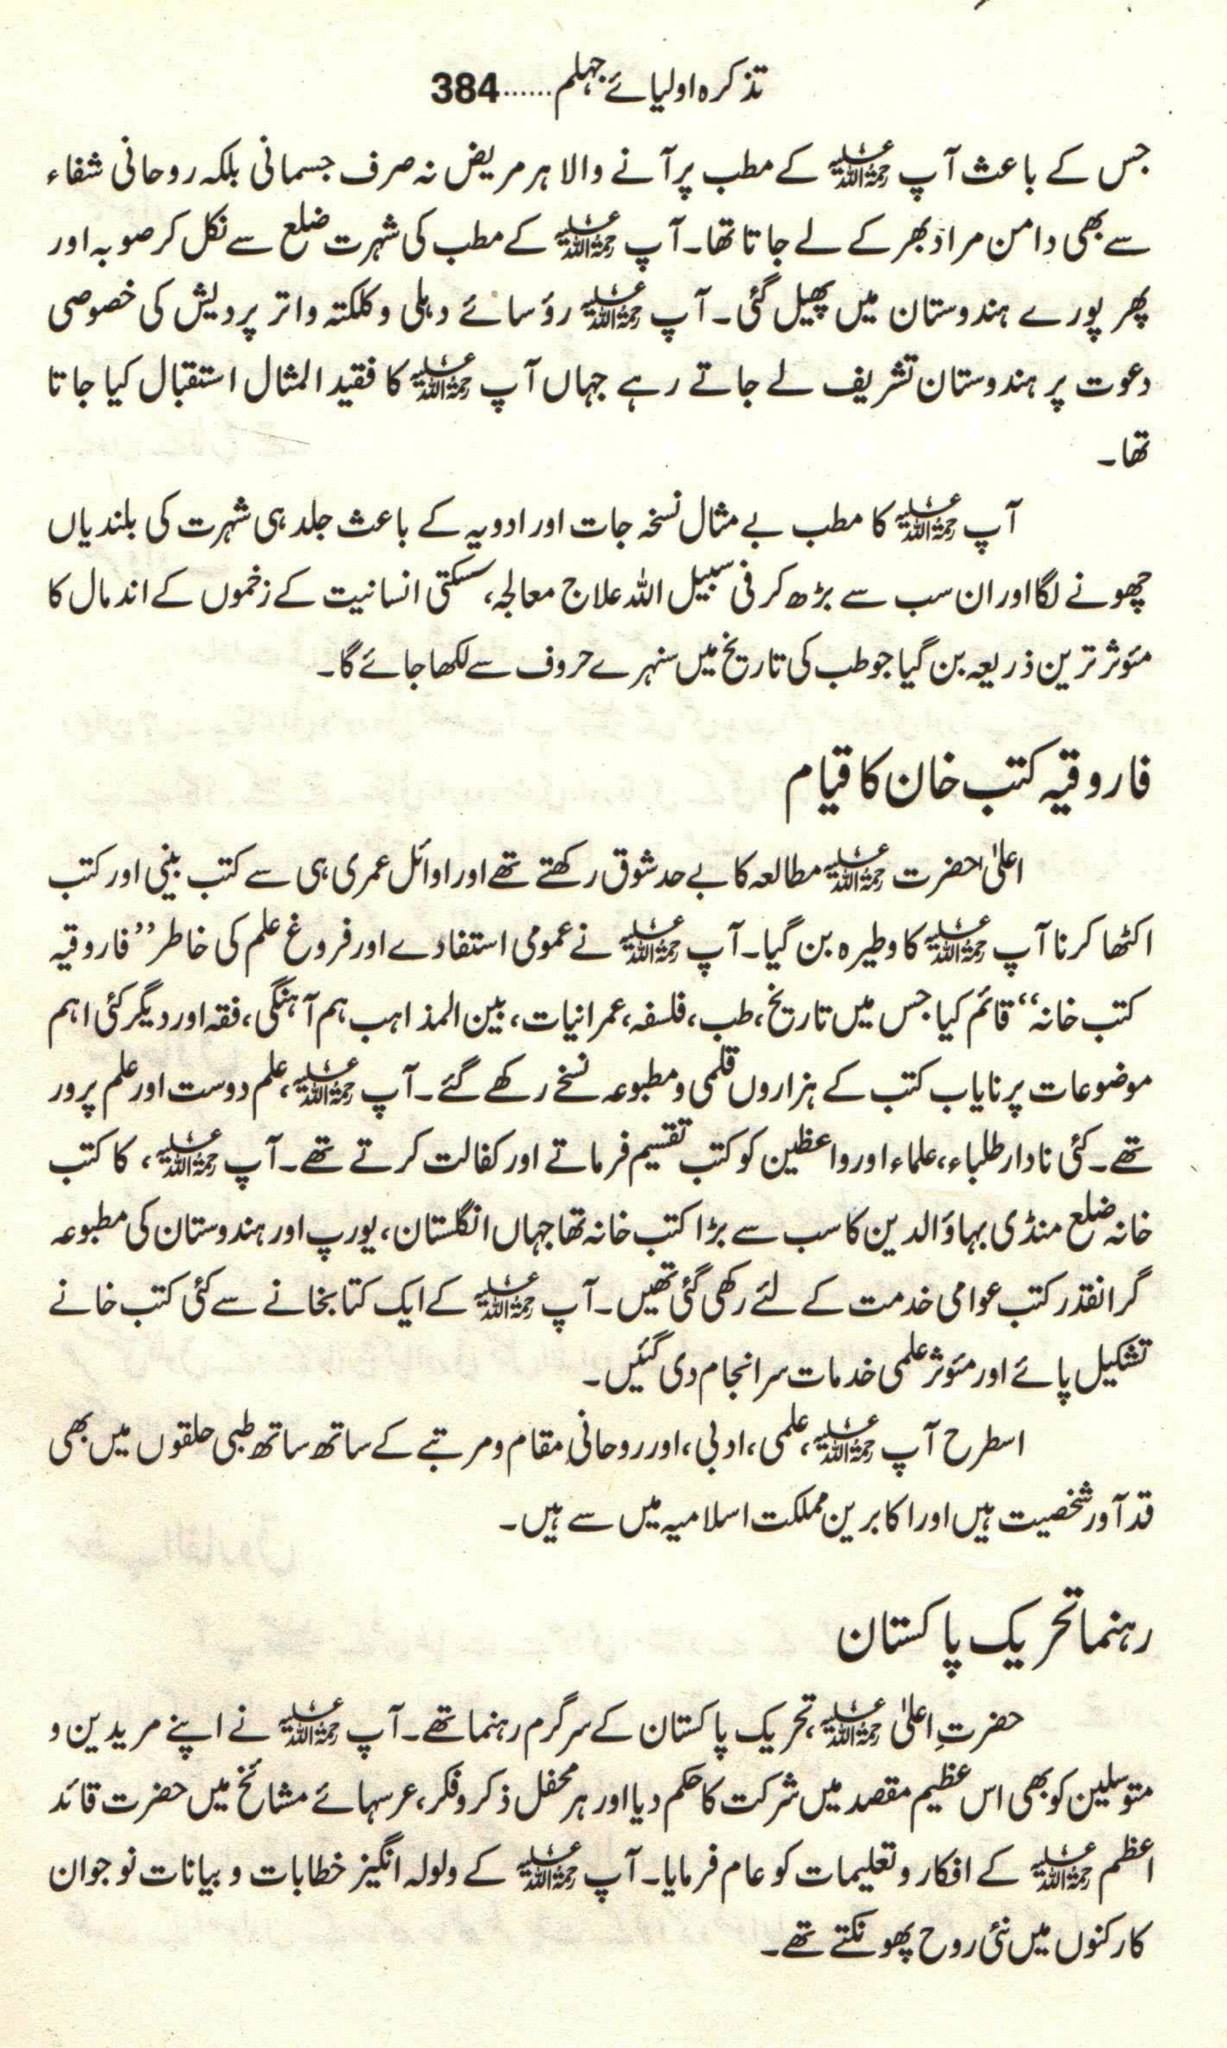 تذکرہ اولیائے جہلم......384
جس کے باعث آپ رحمۃ اللہ علیہ کے مطب پر آنے والا ہر مریض نہ صرف جسمانی بلکہ روحانی شفاء
سے بھی دامن مراد بھر کے لے جاتا تھا۔ آپ رحمۃ اللہ علیہ کے مطب کی شہرت ضلع سے نکل کر صوبہ اور
پھر پورے ہندوستان میں پھیل گئی۔ آپ رحمۃ اللہ علیہ رؤسائے دہلی و کلکتہ واتر پردیش کی خصوصی
دعوت پر ہندوستان تشریف لے جاتے رہے جہاں آپ رحمۃ اللہ علیہ کا فقید المثال استقبال کیا جاتا
تھا۔
آپ رحمۃ اللہ علیہ کا مطب بے مثال نسخہ جات اور ادویہ کے باعث جلد ہی شہرت کی بلندیاں
چھونے لگا اور ان سب سے بڑھ کر فی سبیل اللہ علاج معالجہ، سسکتی انسانیت کے زخموں کے اندمال کا
مئوثر ترین ذریعہ بن گیا جو طب کی تاریخ میں سنہرے حروف سے لکھا جائے گا۔
فاروقیہ کتب خان کا قیام
اعلیٰ حضرت رحمۃ اللہ علیہ مطالعہ کا بے حد شوق رکھتے تھے اور اوائل عمری ہی سے کتب بینی اور کتب
اکٹھا کرنا آپ رحمۃ اللہ علیہ کا وطیرہ بن گیا۔ آپ رحمۃ اللہ علیہ نے عمومی استفادے اور فروغ علم کی خاطر ”فاروقیہ
کتب خانہ“ قائم کیا جس میں تاریخ، طب، فلسفہ، عمرانیات، بین المذاہب ہم آہنگی، فقہ اور دیگر کئی اہم
موضوعات پر نایاب کتب کے ہزاروں قلمی و مطبوعہ نسخے رکھے گئے۔ آپ رحمۃ اللہ علیہ، علم دوست اور علم پرور
تھے۔ کئی نادار طلباء، علماء اور واعظین کو کتب تقسیم فرماتے اور کفالت کرتے تھے۔ آپ رحمۃ اللہ علیہ، کا کتب
خانہ ضلع منڈی بہاؤالدین کا سب سے بڑا کتب خانہ تھا جہاں انگلستان، یورپ اور ہندوستان کی مطبوعہ
گرانقدر کتب عوامی خدمت کے لئے رکھی گئی تھیں۔ آپ رحمۃ اللہ علیہ کے ایک کتابخانے سے کئی کتب خانے
تشکیل پائے اور مئوثر علمی خدمات سرانجام دی گئیں۔
اسطرح آپ رحمۃ اللہ علیہ، علمی، ادبی، اور روحانی مقام و مرتبے کے ساتھ ساتھ طبی حلقوں میں بھی
قد آور شخصیت ہیں اور اکابرین مملکت اسلامیہ میں سے ہیں۔
رہنما تحریک پاکستان
حضرتِ اعلیٰ رحمۃ اللہ علیہ، تحریک پاکستان کے سرگرم رہنما تھے۔ آپ رحمۃ اللہ علیہ نے اپنے مریدین و
متوسلین کو بھی اس عظیم مقصد میں شرکت کا حکم دیا اور ہر محفل ذکر و فکر، عرسہائے مشائخ میں حضرت قائد
اعظم رحمۃ اللہ علیہ کے افکار و تعلیمات کو عام فرمایا۔ آپ رحمۃ اللہ علیہ کے ولولہ انگیز خطابات و بیانات نوجوان
کارکنوں میں نئی روح پھونکتے تھے۔